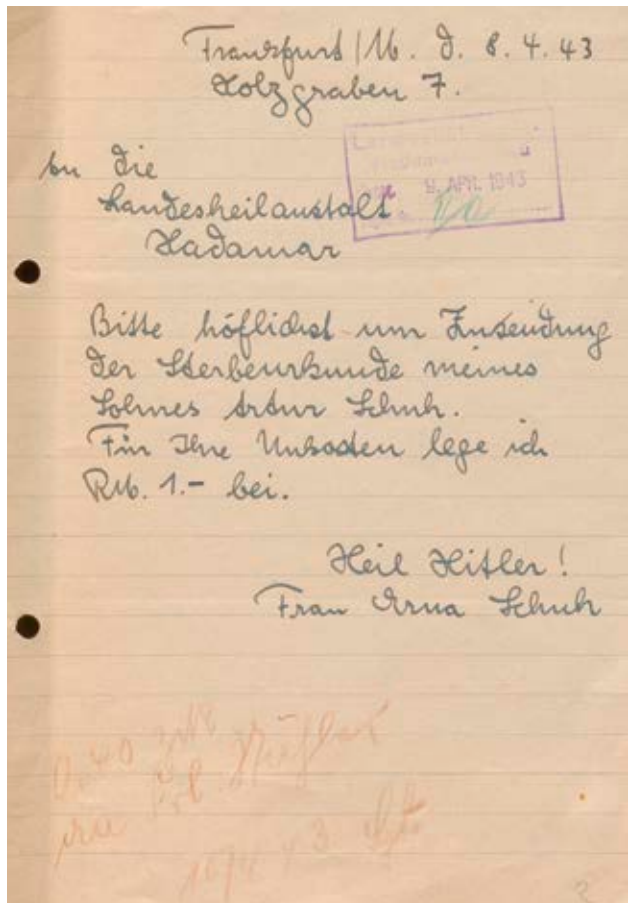 Frankfurt/M. d. 8.4.43
Holzgraben 7.
9. APR. 1943
An die
Landesheilanstalt
Hadamar
Bitte höflichst um Zusendung
der Sterbeurkunde meines
Sohnes Artur Schuh.
Für Ihre Unkosten lege ich
RM. 1.- bei.
Heil Hitler!
Frau Erna Schuh